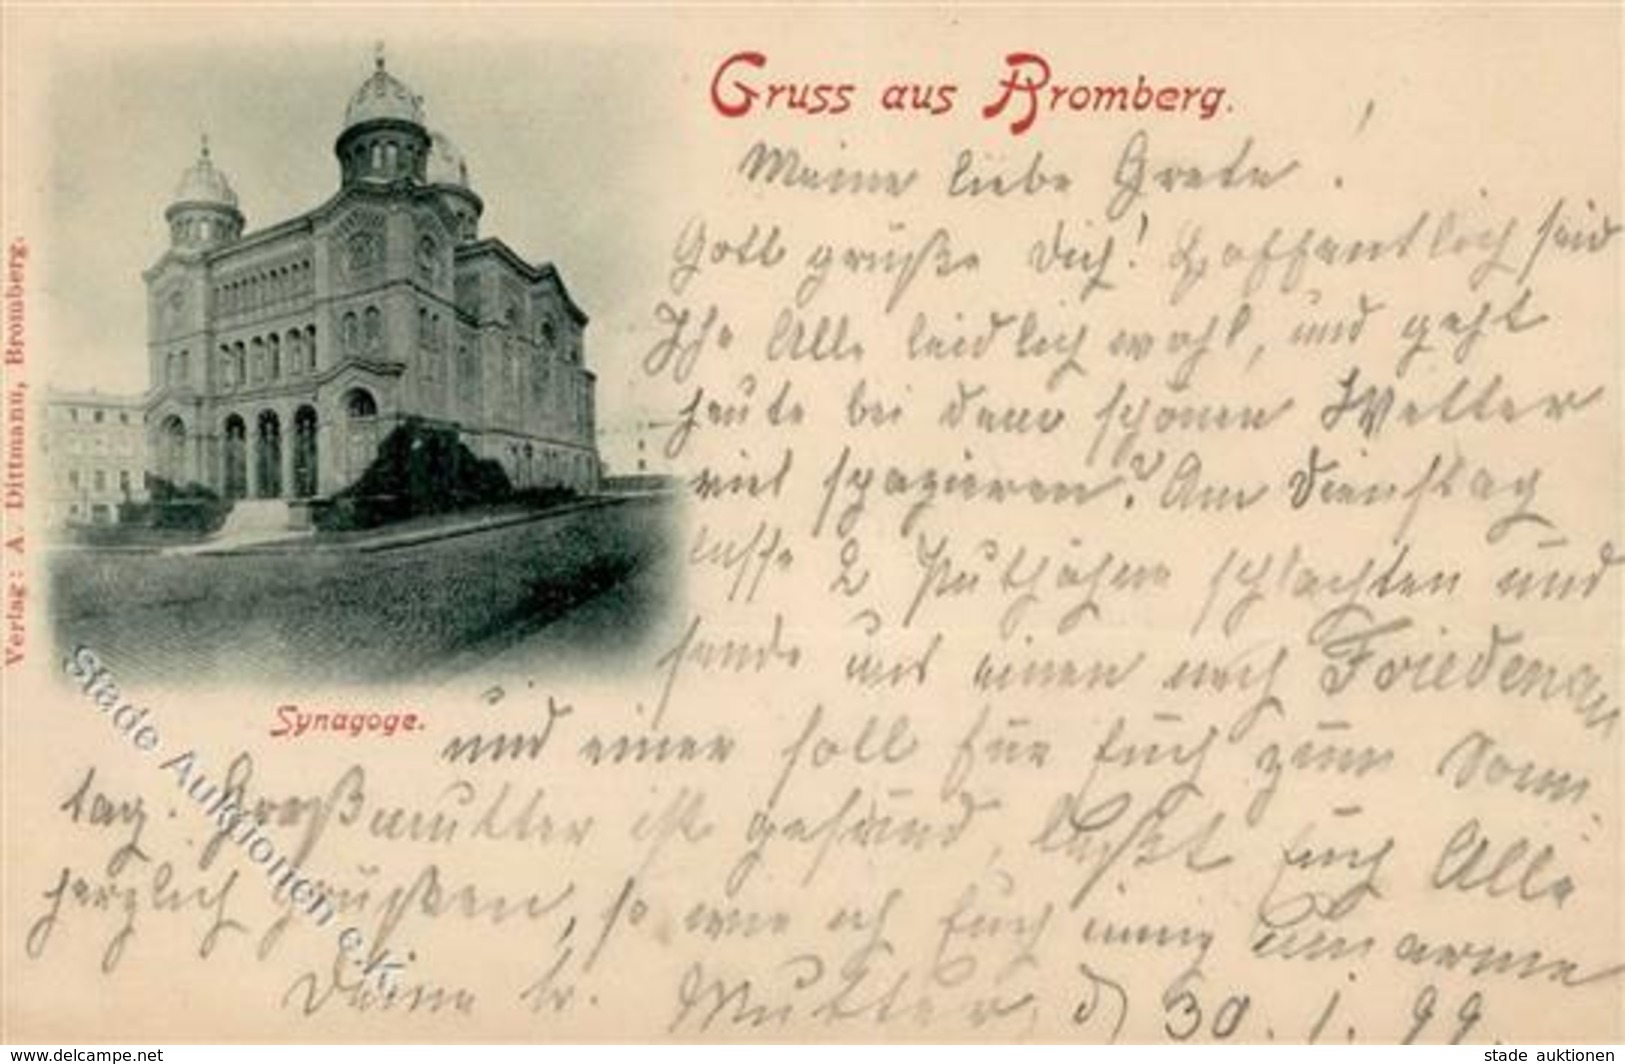 Gruss aus Bromberg.
Meine liebe Grete!
Gott grüße Dich! Hoffentlich seid
Ihr Alle leidlich wohl, und geht
heute bei dem schönen Wetter
viel spazieren? Am Dienstag
lasse 2 Puthähne schlachten und
sende uns einen nach Friedenau
und einer soll für Euch zum Sonn-
tag. Großmutter ist gesund, läßt Euch Alle
herzlich grüßen, so wie ich Euch innig umarme
Deine tr. Mutter, d 30. 1. 99.
Synagoge.
Verlag: A. Dittmann, Bromberg.
Stade Auktionen e.K.
www.delcampe.net
stade auktionen